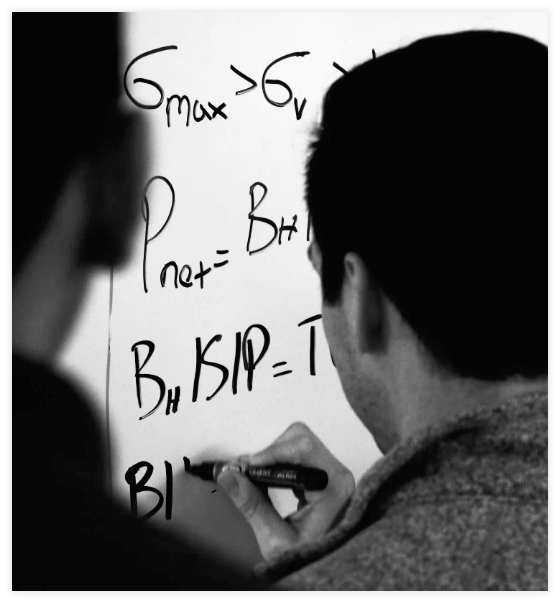 σmax > σv >
Pnet = BH
BH ISIP = T
BI